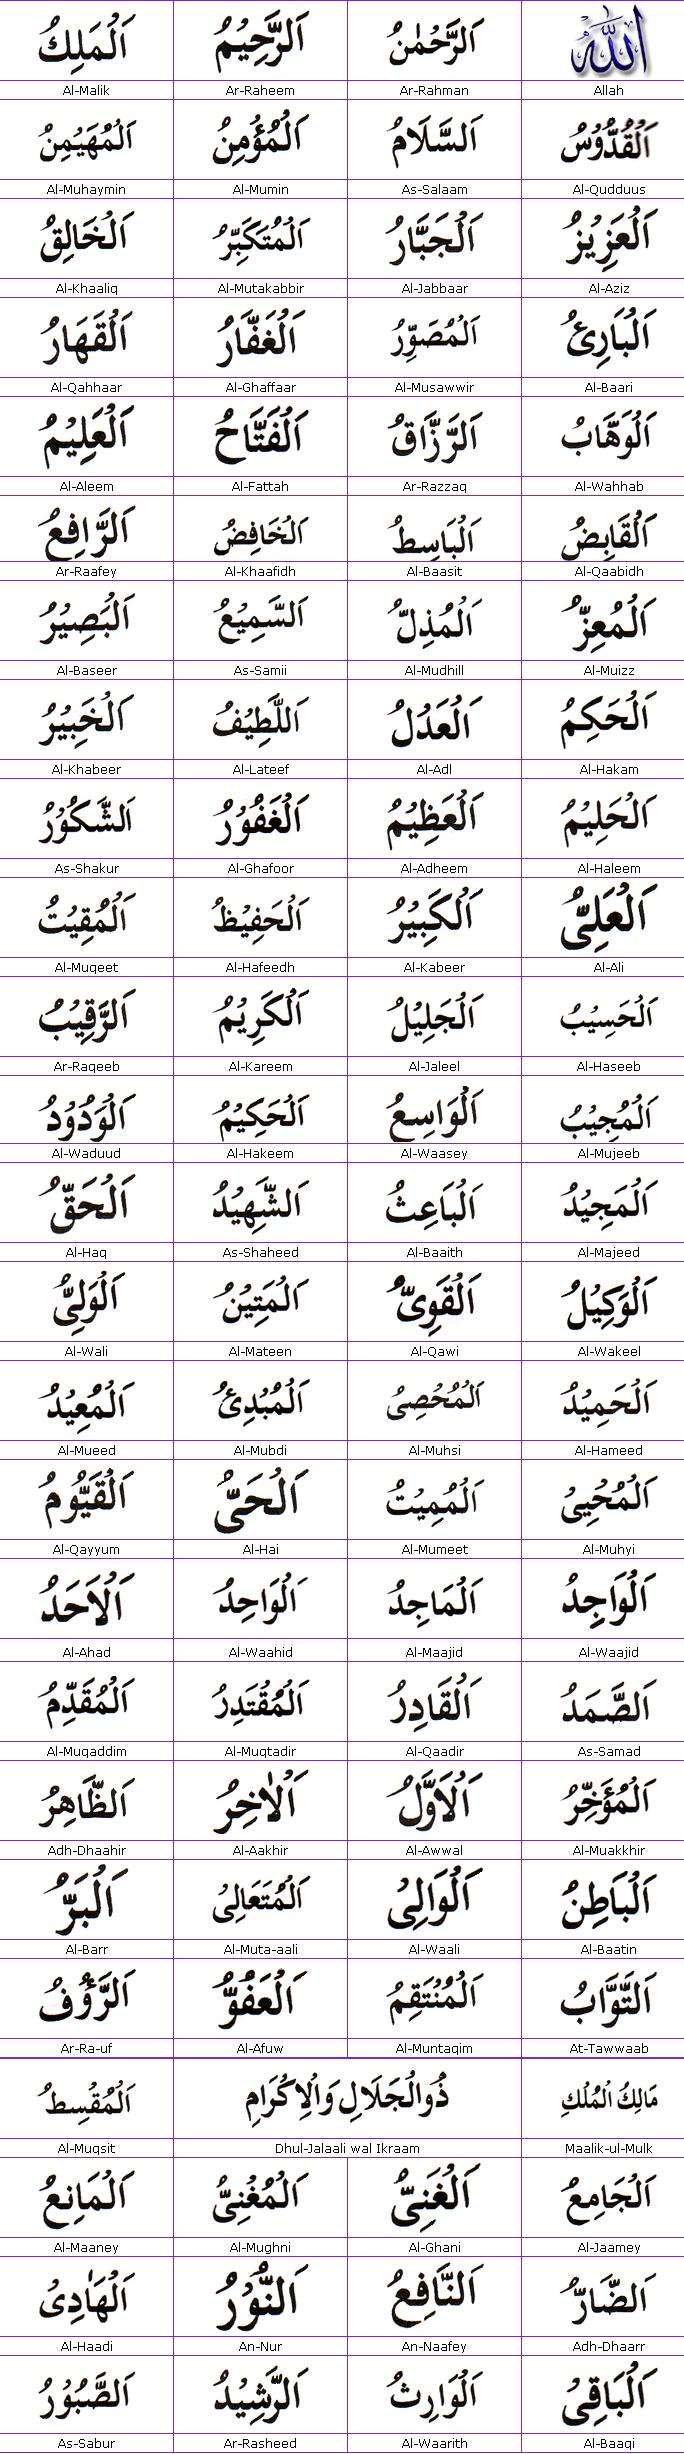 الله
Allah
اَلرَّحْمٰنُ
Ar-Rahman
اَلرَّحِيْمُ
Ar-Raheem
اَلْمَلِكُ
Al-Malik
اَلْقُدُّوْسُ
Al-Qudduus
اَلسَّلَامُ
As-Salaam
اَلْمُؤْمِنُ
Al-Mumin
اَلْمُهَيْمِنُ
Al-Muhaymin
اَلْعَزِيْزُ
Al-Aziz
اَلْجَبَّارُ
Al-Jabbaar
اَلْمُتَكَبِّرُ
Al-Mutakabbir
اَلْخَالِقُ
Al-Khaaliq
اَلْبَارِئُ
Al-Baari
اَلْمُصَوِّرُ
Al-Musawwir
اَلْغَفَّارُ
Al-Ghaffaar
اَلْقَهَارُ
Al-Qahhaar
اَلْوَهَّابُ
Al-Wahhab
اَلرَّزَّاقُ
Ar-Razzaq
اَلْفَتَّاحُ
Al-Fattah
اَلْعَلِيْمُ
Al-Aleem
اَلْقَابِضُ
Al-Qaabidh
اَلْبَاسِطُ
Al-Baasit
اَلْخَافِضُ
Al-Khaafidh
اَلرَّافِعُ
Ar-Raafey
اَلْمُعِزُّ
Al-Muizz
اَلْمُذِلُّ
Al-Mudhill
اَلسَّمِيْعُ
As-Samii
اَلْبَصِيْرُ
Al-Baseer
اَلْحَكِمُ
Al-Hakam
اَلْعَدْلُ
Al-Adl
اَللَّطِيْفُ
Al-Lateef
اَلْخَبِيْرُ
Al-Khabeer
اَلْحَلِيْمُ
Al-Haleem
اَلْعَظِيْمُ
Al-Adheem
اَلْغَفُوْرُ
Al-Ghafoor
اَلشَّكُوْرُ
As-Shakur
اَلْعَلِىُّ
Al-Ali
اَلْكَبِيْرُ
Al-Kabeer
اَلْحَفِيْظُ
Al-Hafeedh
اَلْمُقِيْتُ
Al-Muqeet
اَلْحَسِيْبُ
Al-Haseeb
اَلْجَلِيْلُ
Al-Jaleel
اَلْكَرِيْمُ
Al-Kareem
اَلرَّقِيْبُ
Ar-Raqeeb
اَلْمُجِيْبُ
Al-Mujeeb
اَلْوَاسِعُ
Al-Waasey
اَلْحَكِيْمُ
Al-Hakeem
اَلْوَدُوْدُ
Al-Waduud
اَلْمَجِيْدُ
Al-Majeed
اَلْبَاعِثُ
Al-Baaith
اَلشَّهِيْدُ
As-Shaheed
اَلْحَقُّ
Al-Haq
اَلْوَكِيْلُ
Al-Wakeel
اَلْقَوِىُّ
Al-Qawi
اَلْمَتِيْنُ
Al-Mateen
اَلْوَلِىُّ
Al-Wali
اَلْحَمِيْدُ
Al-Hameed
اَلْمُحْصِىُ
Al-Muhsi
اَلْمُبْدِئُ
Al-Mubdi
اَلْمُعِيْدُ
Al-Mueed
اَلْمُحْيِىُ
Al-Muhyi
اَلْمُمِيْتُ
Al-Mumeet
اَلْحَىُّ
Al-Hai
اَلْقَيُّوْمُ
Al-Qayyum
اَلْوَاجِدُ
Al-Waajid
اَلْمَاجِدُ
Al-Maajid
اَلْوَاحِدُ
Al-Waahid
اَلْاَحَدُ
Al-Ahad
اَلصَّمَدُ
As-Samad
اَلْقَادِرُ
Al-Qaadir
اَلْمُقْتَدِرُ
Al-Muqtadir
اَلْمُقَدِّمُ
Al-Muqaddim
اَلْمُؤَخِّرُ
Al-Muakkhir
اَلْاَوَّلُ
Al-Awwal
اَلْاٰخِرُ
Al-Aakhir
اَلظَّاهِرُ
Adh-Dhaahir
اَلْبَاطِنُ
Al-Baatin
اَلْوَالِىُ
Al-Waali
اَلْمُتَعَالِىُ
Al-Muta-aali
اَلْبَرُّ
Al-Barr
اَلتَّوَّابُ
At-Tawwaab
اَلْمُنْتَقِمُ
Al-Muntaqim
اَلْعَفُوُّ
Al-Afuw
اَلرَّؤُفُ
Ar-Ra-uf
مَالِكُ الْمُلْكِ
Maalik-ul-Mulk
ذُوالْجَلَالِ وَالْاِكْرَامِ
Dhul-Jalaali wal Ikraam
اَلْمُقْسِطُ
Al-Muqsit
اَلْجَامِعُ
Al-Jaamey
اَلْغَنِىُّ
Al-Ghani
اَلْمُغْنِىُّ
Al-Mughni
اَلْمَانِعُ
Al-Maaney
اَلضَّارُّ
Adh-Dhaarr
اَلنَّافِعُ
An-Naafey
اَلنُّوْرُ
An-Nur
اَلْهَادِىُ
Al-Haadi
اَلْبَاقِىُ
Al-Baaqi
اَلْوَارِثُ
Al-Waarith
اَلرَّشِيْدُ
Ar-Rasheed
اَلصَّبُوْرُ
As-Sabur